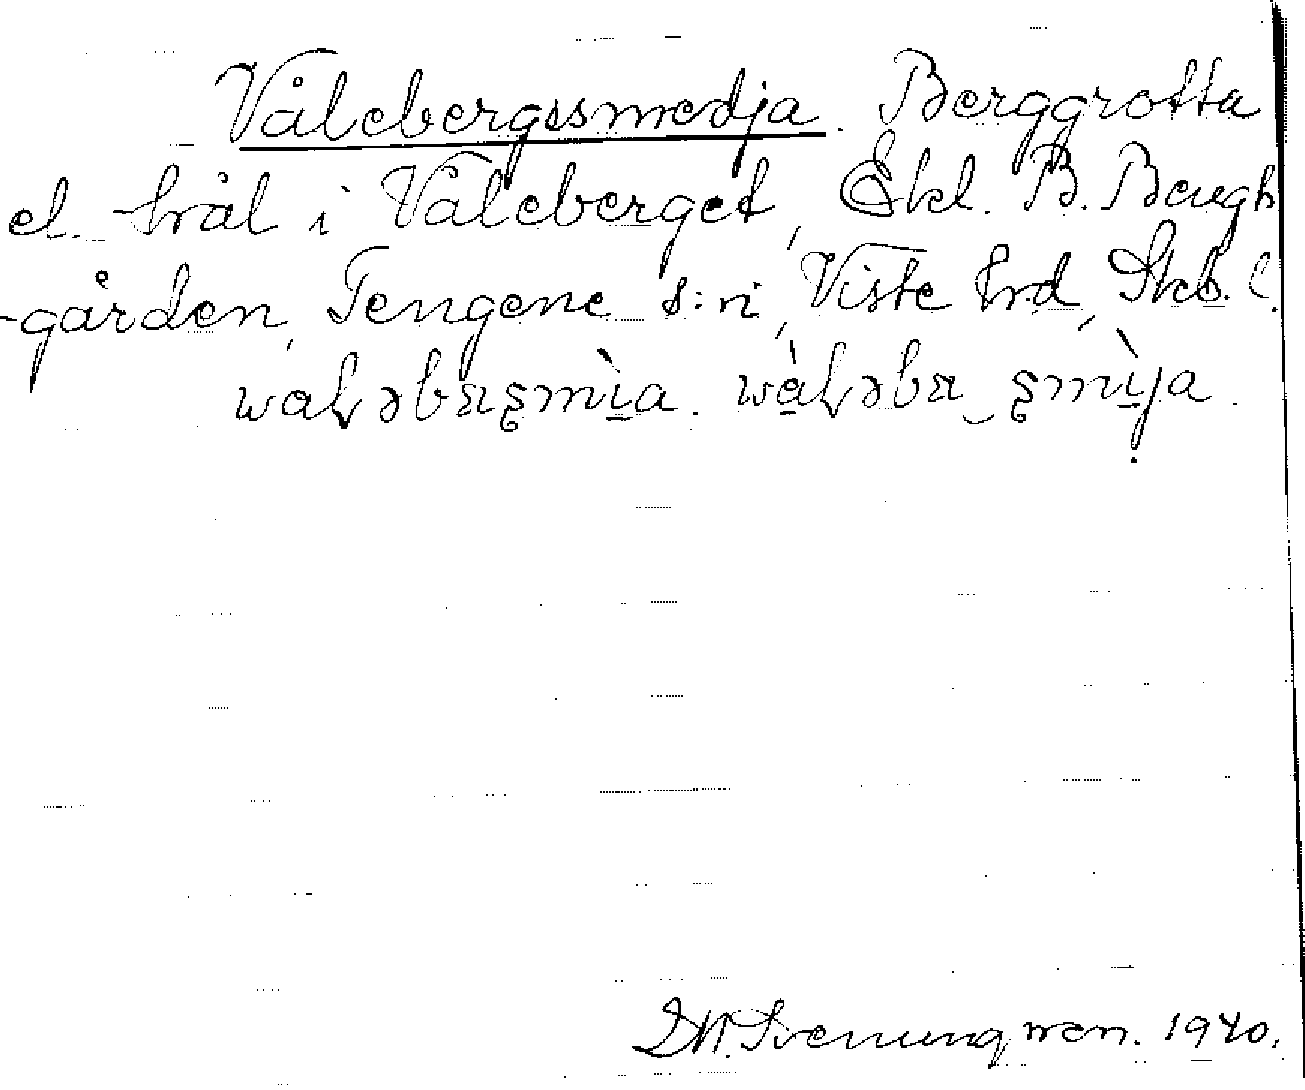 Vålebergssmedja. Berggrotta
el. hål i Våleberget, Ekl. B. Bengts
-gården, Tengene s:n, Viste hrd, Skb. l.
waɭəbæʂmìa. wàɭəbæ ʂmìja.
Svenungsson. 1940.